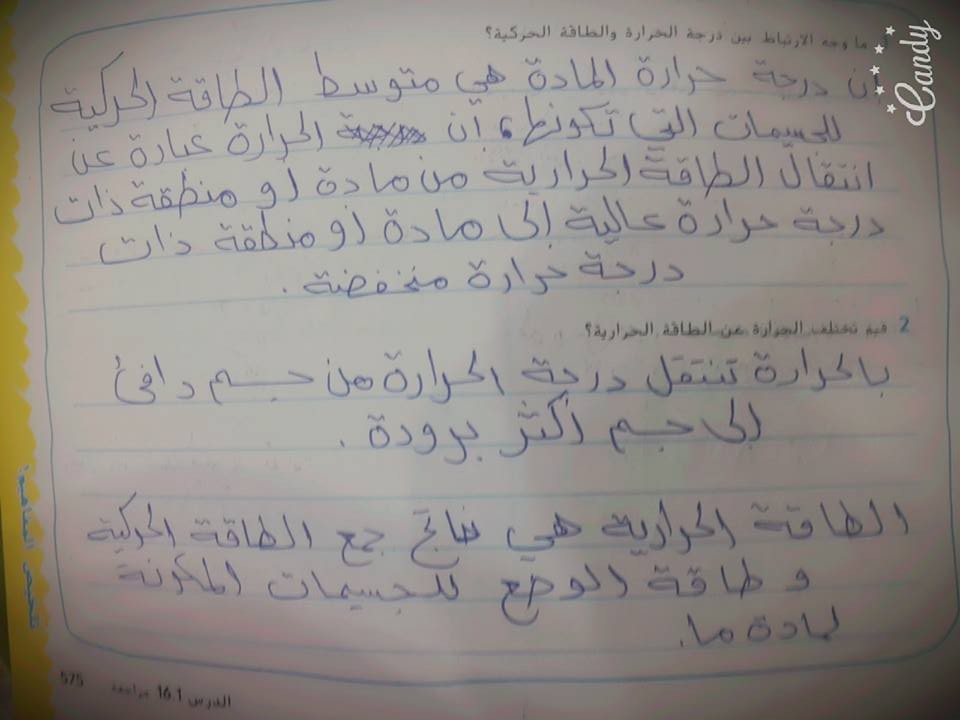 ما وجه الارتباط بين درجة الحرارة والطاقة الحركية؟
Candy
ان درجة حرارة المادة هي متوسط الطاقة الحركية
للجسيمات التي تكونها، أن الحرارة عبارة عن
انتقال الطاقة الحرارية من مادة او منطقة ذات
درجة حرارة عالية إلى مادة او منطقة ذات
درجة حرارة منخفضة.
2 فيم تختلف الحرارة عن الطاقة الحرارية؟
بالحرارة تنتقل درجة الحرارة من جسم دافئ
الى جسم أكثر برودة.
الطاقة الحرارية هي ناتج جمع الطاقة الحركية
و طاقة الوضع للجسيمات المكونة
لمادة ما.
تلخيص المفاهيم!
الدرس 16.1 مراجعة 575